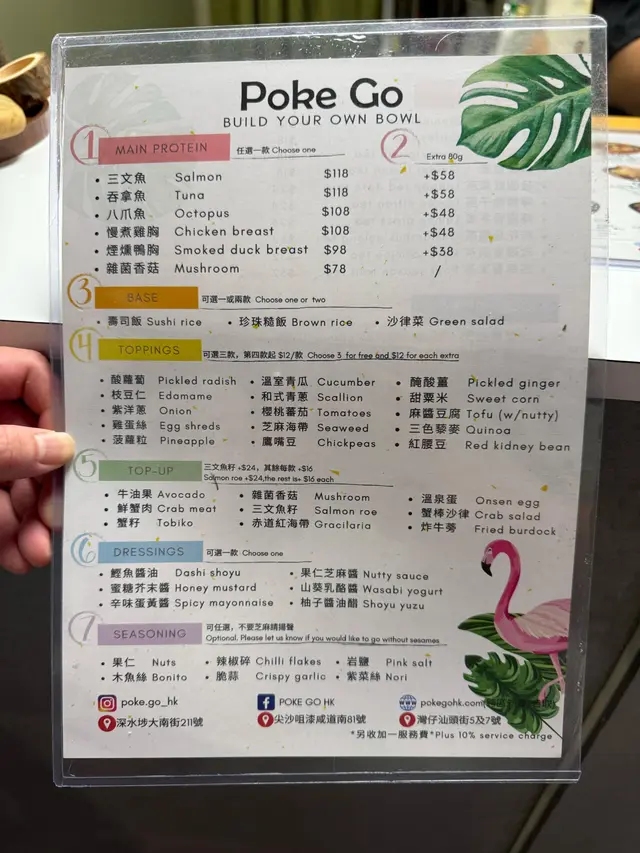 Poke Go
BUILD YOUR OWN BOWL
1 MAIN PROTEIN 任選一款 Choose one 2 Extra 80g
• 三文魚 Salmon $118 +$58
• 吞拿魚 Tuna $118 +$58
• 八爪魚 Octopus $108 +$48
• 慢煮雞胸 Chicken breast $108 +$48
• 煙燻鴨胸 Smoked duck breast $98 +$38
• 雜菌香菇 Mushroom $78 /
3 BASE 可選一或兩款 Choose one or two
• 壽司飯 Sushi rice • 珍珠糙飯 Brown rice • 沙律菜 Green salad
4 TOPPINGS 可選三款，第四款起 $12/款 Choose 3 for free and $12 for each extra
• 酸蘿蔔 Pickled radish • 溫室青瓜 Cucumber • 醃酸薑 Pickled ginger
• 枝豆仁 Edamame • 和式青蔥 Scallion • 甜粟米 Sweet corn
• 紫洋蔥 Onion • 櫻桃蕃茄 Tomatoes • 麻醬豆腐 Tofu (w/nutty)
• 雞蛋絲 Egg shreds • 芝麻海帶 Seaweed • 三色藜麥 Quinoa
• 菠蘿粒 Pineapple • 鷹嘴豆 Chickpeas • 紅腰豆 Red kidney bean
5 TOP-UP 三文魚籽 +$24，其餘每款 +$16
Salmon roe +$24,the rest is+ $16 each
• 牛油果 Avocado • 雜菌香菇 Mushroom • 溫泉蛋 Onsen egg
• 鮮蟹肉 Crab meat • 三文魚籽 Salmon roe • 蟹棒沙律 Crab salad
• 蟹籽 Tobiko • 赤道紅海帶 Gracilaria • 炸牛蒡 Fried burdock
6 DRESSINGS 可選一款 Choose one
• 鰹魚醬油 Dashi shoyu • 果仁芝麻醬 Nutty sauce
• 蜜糖芥末醬 Honey mustard • 山葵乳酪醬 Wasabi yogurt
• 辛味蛋黃醬 Spicy mayonnaise • 柚子醬油醋 Shoyu yuzu
7 SEASONING 可任選，不要芝麻請揚聲
Optional. Please let us know if you would like to go without sesames
• 果仁 Nuts • 辣椒碎 Chilli flakes • 岩鹽 Pink salt
• 木魚絲 Bonito • 脆蒜 Crispy garlic • 紫菜絲 Nori
poke.go_hk POKE GO HK www.pokegohk.com
深水埗大南街211號 尖沙咀漆咸道南81號 灣仔汕頭街5及7號
*另收加一服務費*Plus 10% service charge